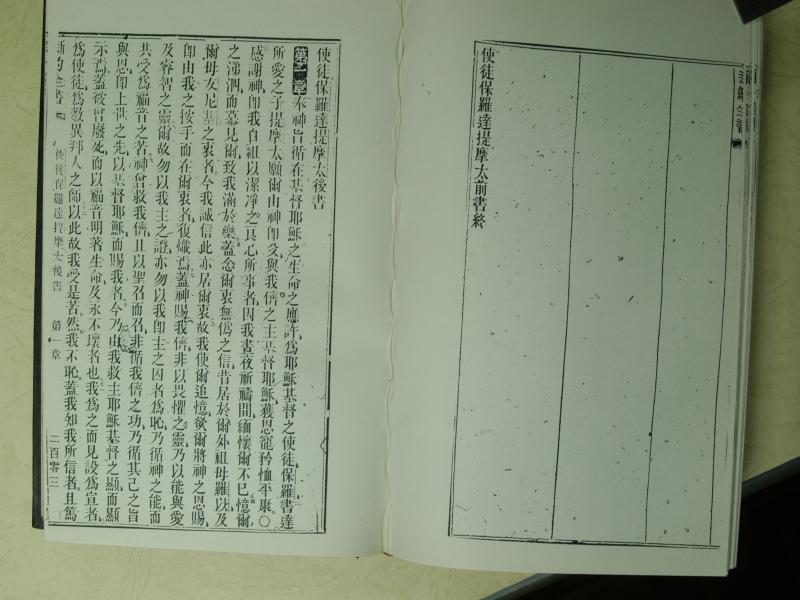 使徒保羅達提摩太前書終
使徒保羅達提摩太後書
第一章奉神旨循在基督耶穌之生命之應許爲耶穌基督之使徒保羅書達
所愛之子提摩太願爾由神卽父與我儕之主基督耶穌獲恩寵矜恤平康〇
感謝神卽我自祖以潔淨之良心所事者因我晝夜祈禱間緬懷爾不已憶爾
之涕泗而慕見爾致我滿於樂蓋念爾衷無僞之信昔居於爾外祖母羅以及
爾母友尼基之衷者今我誠信此亦居爾衷故我使爾追憶欲爾將神之恩賜
卽由我之按手而在爾衷者復熾焉蓋神賜我儕非以畏懼之靈乃以能與愛
及睿智之靈爾故勿以我主之證亦勿以我卽主之囚者爲恥乃循神之能而
共受爲福音之苦神曾救我儕且以聖召而召非循我儕之功乃循其己之旨
與恩卽上世之先以基督耶穌而賜我者今乃由我救主耶穌基督之顯而顯
示焉蓋彼曾廢死而以福音明著生命及永不壞者也我爲之而見設爲宣者
爲使徒爲敎異邦人之師以此故我受是苦然我不恥蓋我知我所信者且篤
新約全書 使徒保羅達提摩太後書 第一章 二百零三